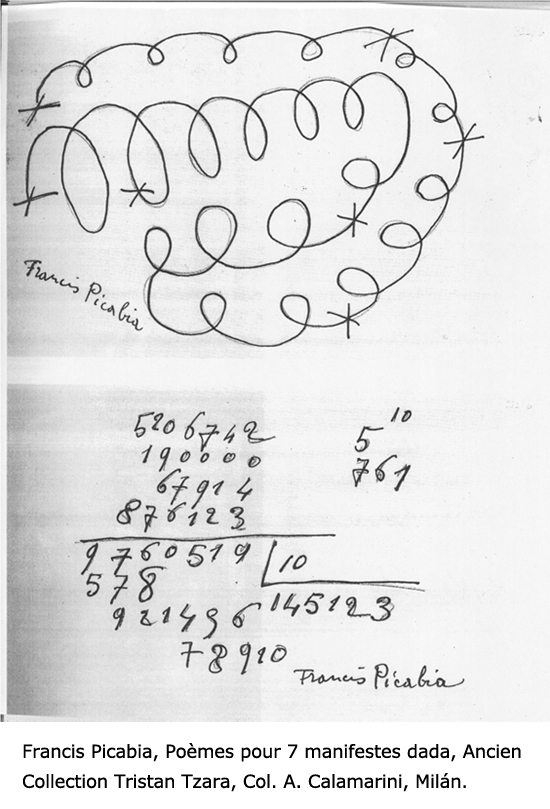 Francis Picabia
5206742
190000
67914
876123
9760519
10
578
145123
921496
78910
10
5
761
Francis Picabia
Francis Picabia, Poèmes pour 7 manifestes dada, Ancien
Collection Tristan Tzara, Col. A. Calamarini, Milán.